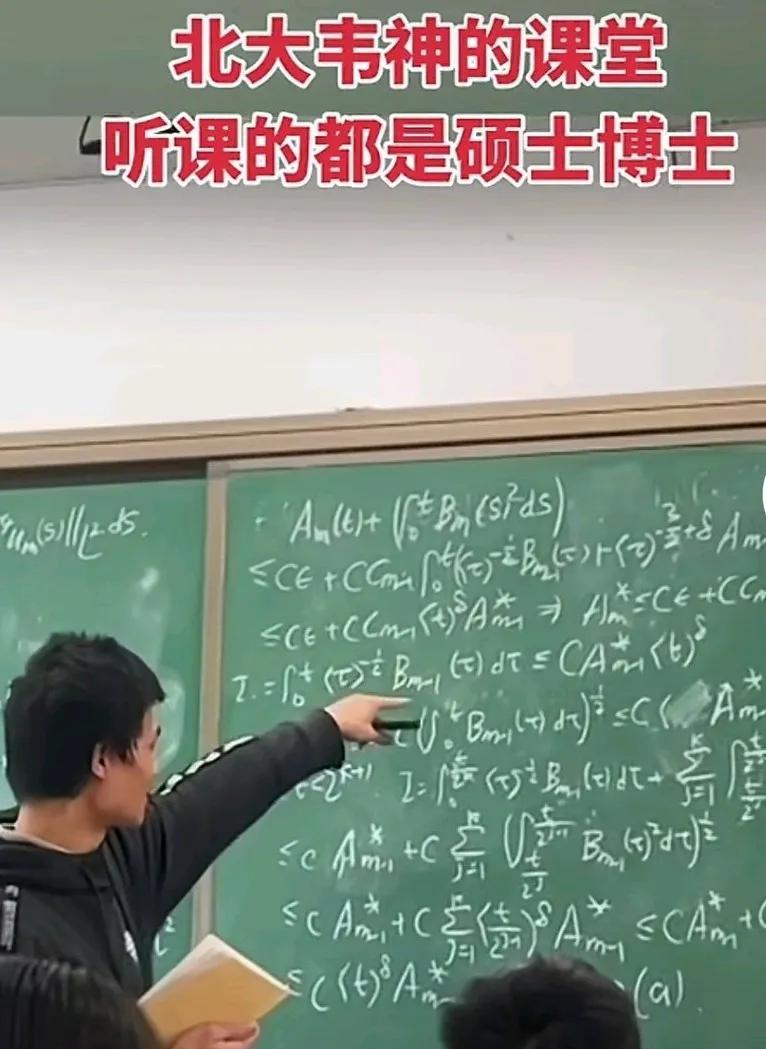 北大韦神的课堂
听课的都是硕士博士
u_m(s)||_{L^2} ds.
A_m(t) + (∫_0^t B_m(s)^2 ds)
≤ Cε + CC_{m-1} ∫_0^t ⟨τ⟩^{-1/2} B_{m-1}(τ) + ⟨τ⟩ A_m
≤ Cε + CC_{m-1} ⟨t⟩^δ A^*_{m-1} ⇒ A^*_m ≤ Cε + CC_m
I = ∫_0^t ⟨τ⟩^{-1/2} B_{m-1}(τ) dτ ≤ CA^*_{m-1} ⟨t⟩^δ
(∫_0^t B_{m-1}(τ) dτ)^{1/2} ≤ C A^*_m
2^{k+1} I = ∫_0 ⟨τ⟩^{-1/2} B_{m-1}(τ) dτ + Σ_{j=1}^k ∫
≤ C A^*_{m-1} + C Σ_{j=1}^k (∫_{t/2^j}^{t/2^{j-1}} B_{m-1}(τ)^2 dτ)^{1/2}
≤ C A^*_{m-1} + C Σ_{j=1}^k ⟨t/2^{j-1}⟩^δ A^*_{m-1} ≤ CA^*_{m-1} + C
≤ C⟨t⟩^δ A^*_m (a).